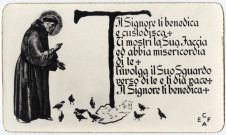 Il Signore ti benedica
e custodisca+
Ti mostri la Sua Faccia
ed abbia misericordia
di te+
Rivolga il Suo Sguardo
verso di te e ti dia pace+
Il Signore ti benedica+
T
C
E F
A